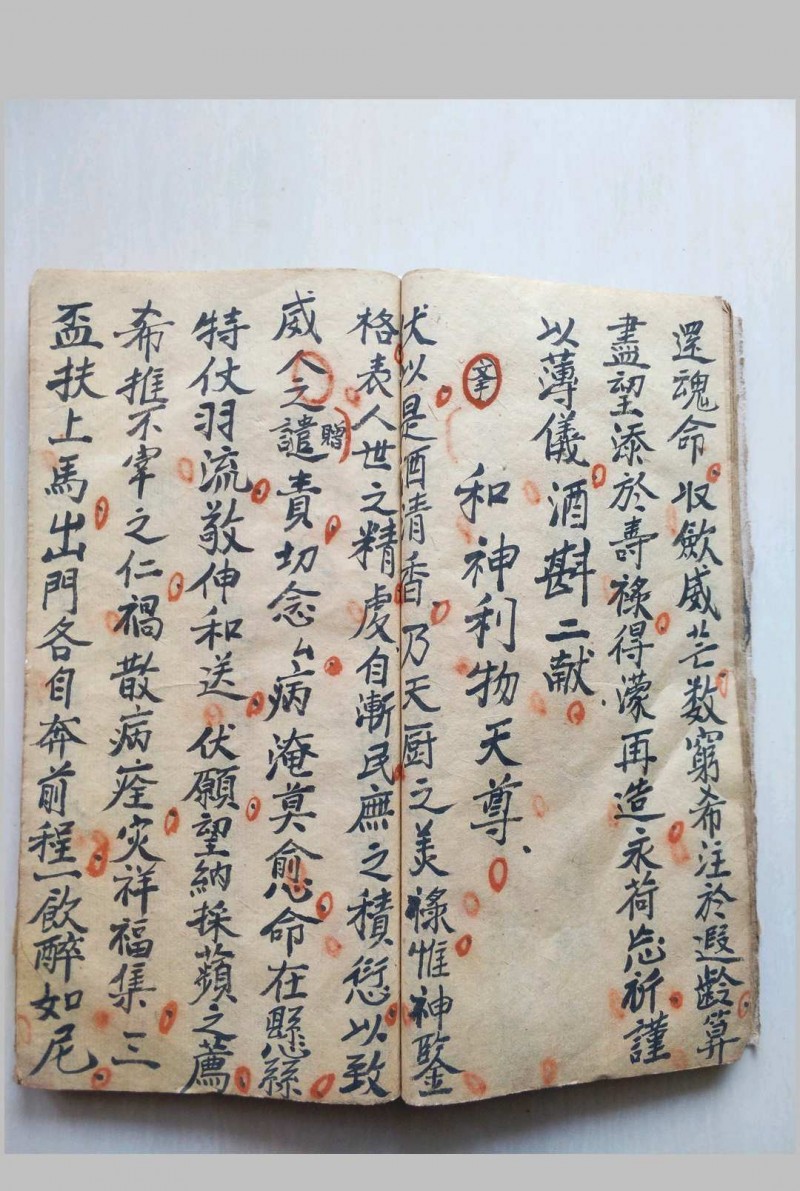 還魂命收歛威芒数窮希注於遐齡算
盡望添於壽祿得濛再造永荷忩祈謹
以薄儀酒斟二献
和神利物天尊
伏以是酒清香乃天厨之美祿惟神鑒
格表人世之精虔自漸民庶之積愆以致
威人之譴責切念厶病淹莫愈忩命在懸絲
贈
特仗羽流敬伸和送伏願望納採蘋之薦
希推不宰之仁禍散病痊灾祥福集三
盃扶上馬出門各自奔前程一飲醉如尼